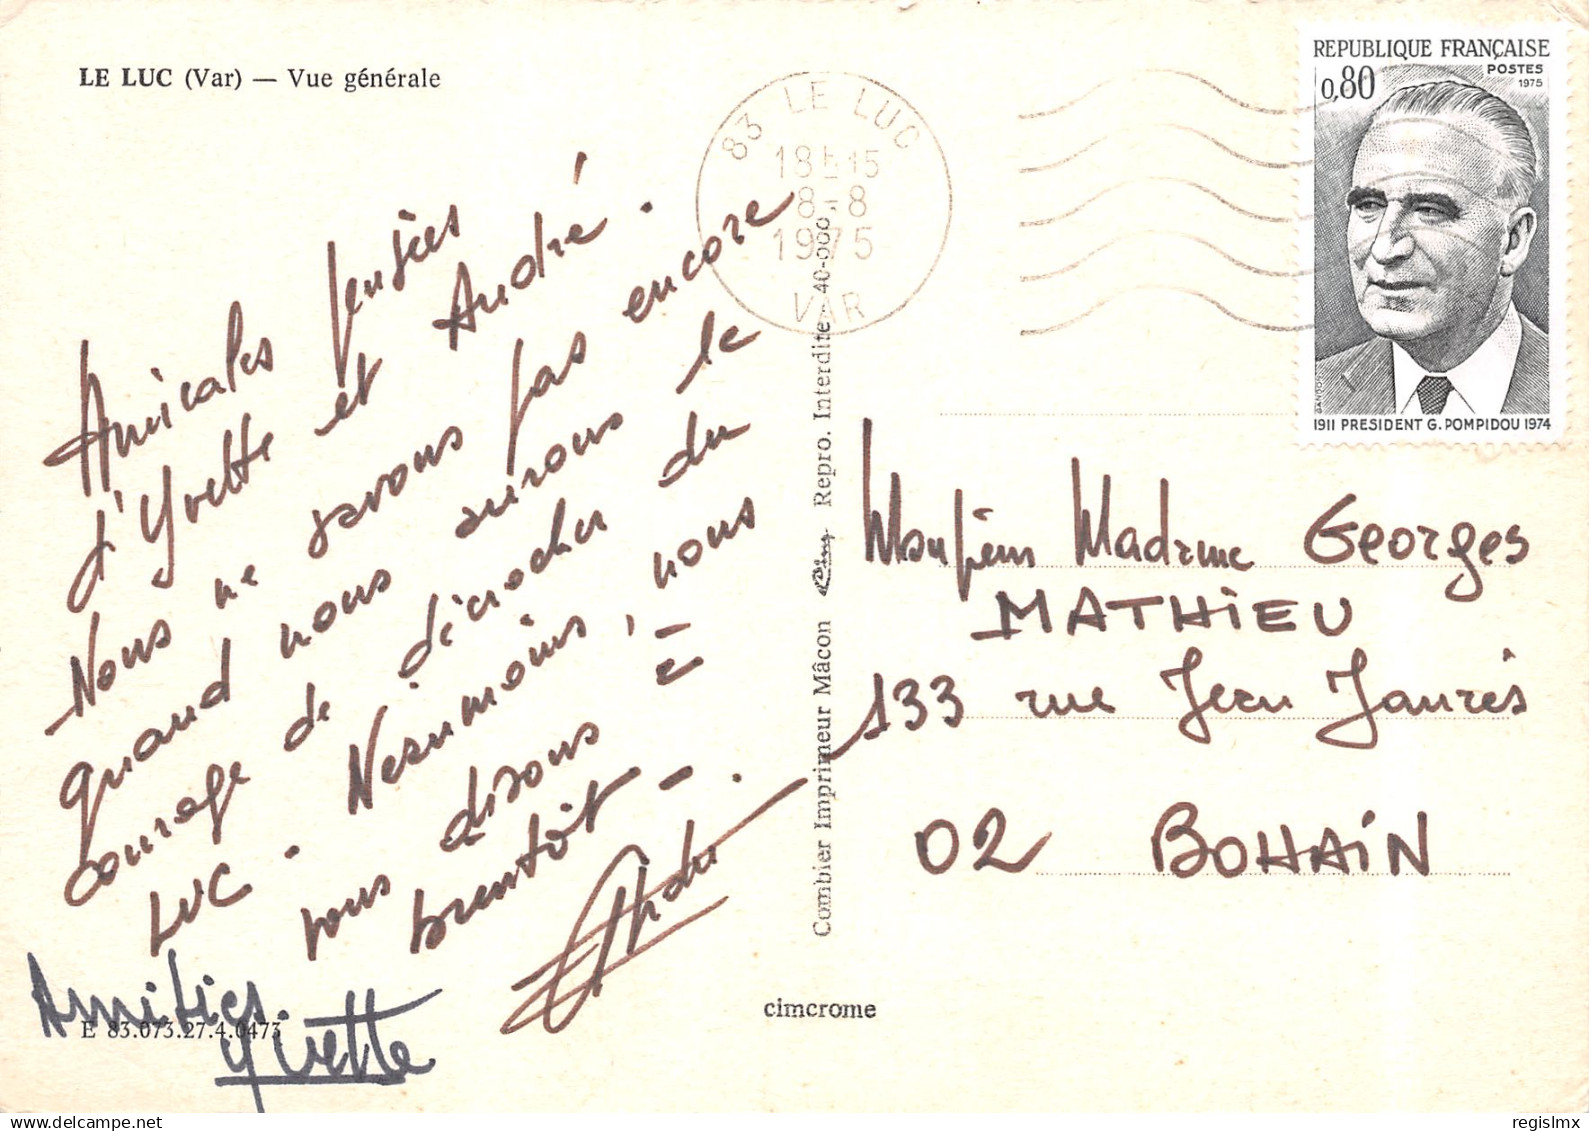 LE LUC (Var) — Vue générale
Amicales pensées
d'Yvette et André.
Nous ne savons pas encore
quand nous aurons le
courage de décrocher du
LUC. Néanmoins, nous
vous disons à
bientôt —
André.
Amitiés
Yvette
E 83.073.27.4.0473
83 LE LUC
18H15
8-8
1975
VAR
REPUBLIQUE FRANÇAISE
POSTES
1975
0,80
GANDON
1911 PRESIDENT G. POMPIDOU 1974
Monsieur Madame Georges
MATHIEU
133 rue Jean Jaurès
02 BOHAIN
Combier Imprimeur Mâcon Cim Repro. Interdite 40-000
cimcrome
regislmx